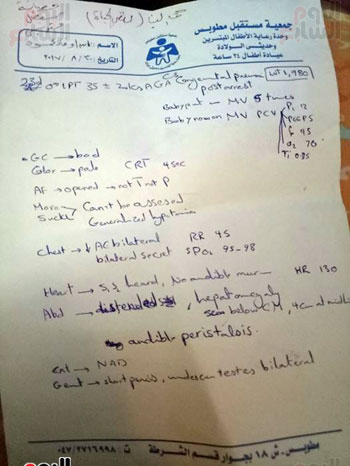 جمعية مستقبل مطوبس
وحدة رعاية الأطفال المبتسرين
وحديثى الولادة
عيادة أطفال ٢٤ ساعة
الاسم :
التاريخ :
wt 1,980
PT 35 ± 2 wks AGA Congenital pneum
post arrest
Baby put → MV 5 times
Baby now on MV PCV
Pi 12
PEEP 5
F 45
O2 70
Ti 0.35
GC → bad
Color → pale CRT 4 sec
AF → opened → not T not P
Moro
Suckl
Can't be assessed
Generalized hypotonia
Chest → ↓ AE bilateral RR 45
bilateral secret SPO2 95-98
Heart → S1 S2 heard, No audible mur HR 130
Abd → distended, hepatomegaly
below CM, 4 cm
audible peristalsis.
Ext → NAD
Gent → short penis, undescen testes bilateral
مطوبس - ش ١٨ بجوار قسم الشرطة ت : ٠٤٧/٢٧١٦٩٩٨